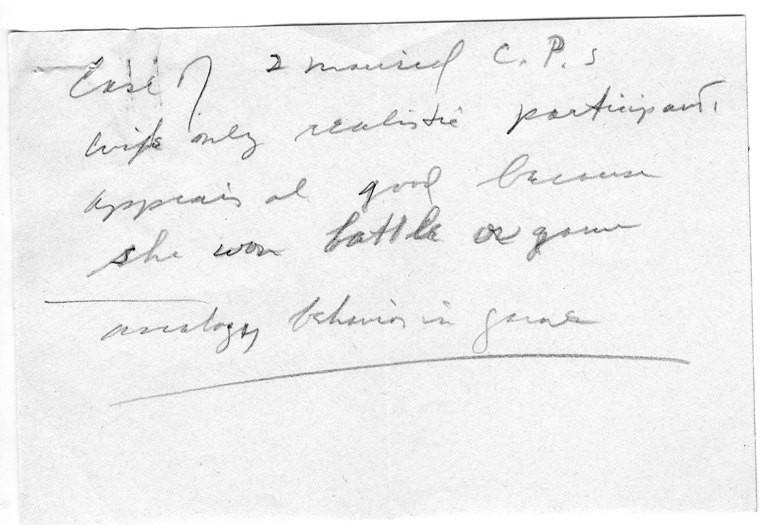 Case of 2 married C.P.s
wife only realistic participant,
appears good because
she won battle or game
analogy behavior in game